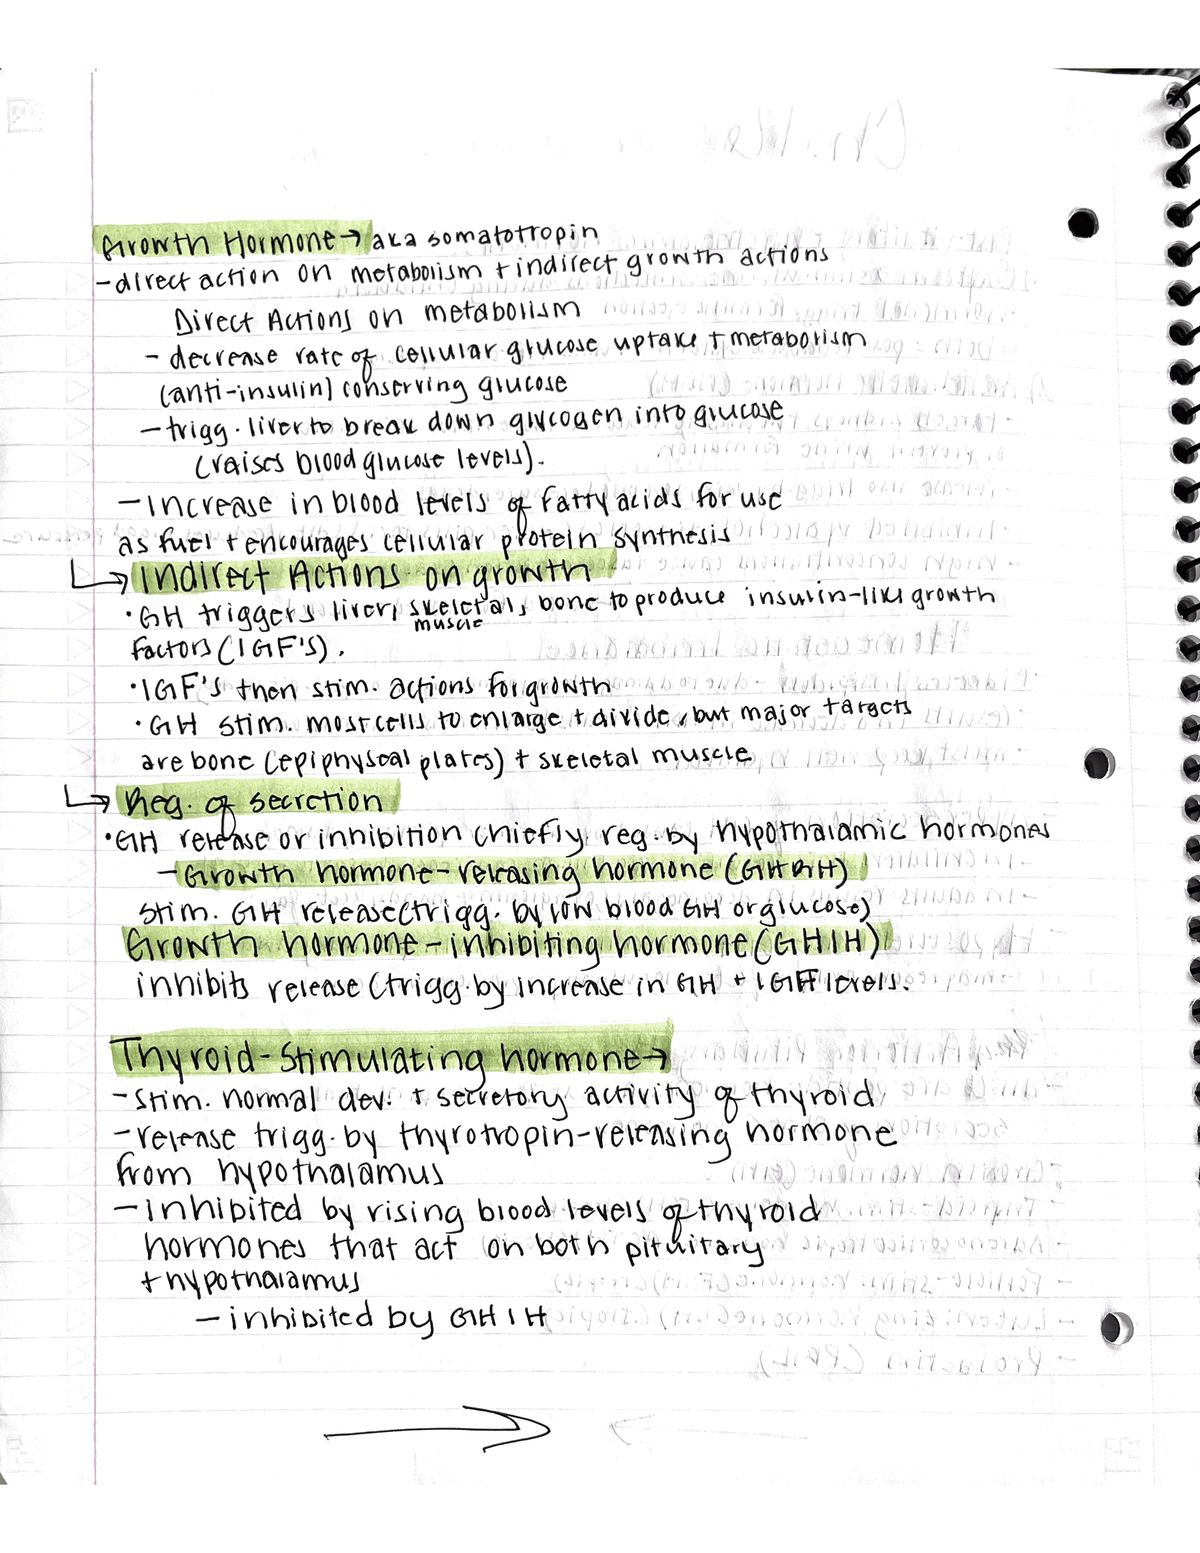 Growth Hormone → aka somatotropin
- direct action on metabolism + indirect growth actions
Direct Actions on metabolism
- decrease rate of cellular glucose uptake + metabolism
(anti-insulin) conserving glucose
- trigg. liver to break down glycogen into glucose
(raises blood glucose levels).
- Increase in blood levels of fatty acids for use
as fuel + encourages cellular protein synthesis
↳ Indirect Actions on growth
• GH triggers liver, skeletal, bone to produce insulin-like growth
muscle
factors (IGF's).
• IGF's then stim. actions for growth
• GH stim. most cells to enlarge + divide, but major targets
are bone (epiphyseal plates) + skeletal muscle
↳ Reg. of secretion
• GH release or inhibition chiefly reg. by hypothalamic hormones
- Growth hormone-releasing hormone (GHRH)
stim. GH release (trigg. by low blood GH or glucose)
Growth hormone-inhibiting hormone (GHIH)
inhibits release (trigg. by increase in GH + IGF levels.
Thyroid-Stimulating hormone →
- stim. normal dev. + secretory activity of thyroid
- release trigg. by thyrotropin-releasing hormone
from hypothalamus
- inhibited by rising blood levels of thyroid
hormones that act on both pituitary
+ hypothalamus
- inhibited by GHIH